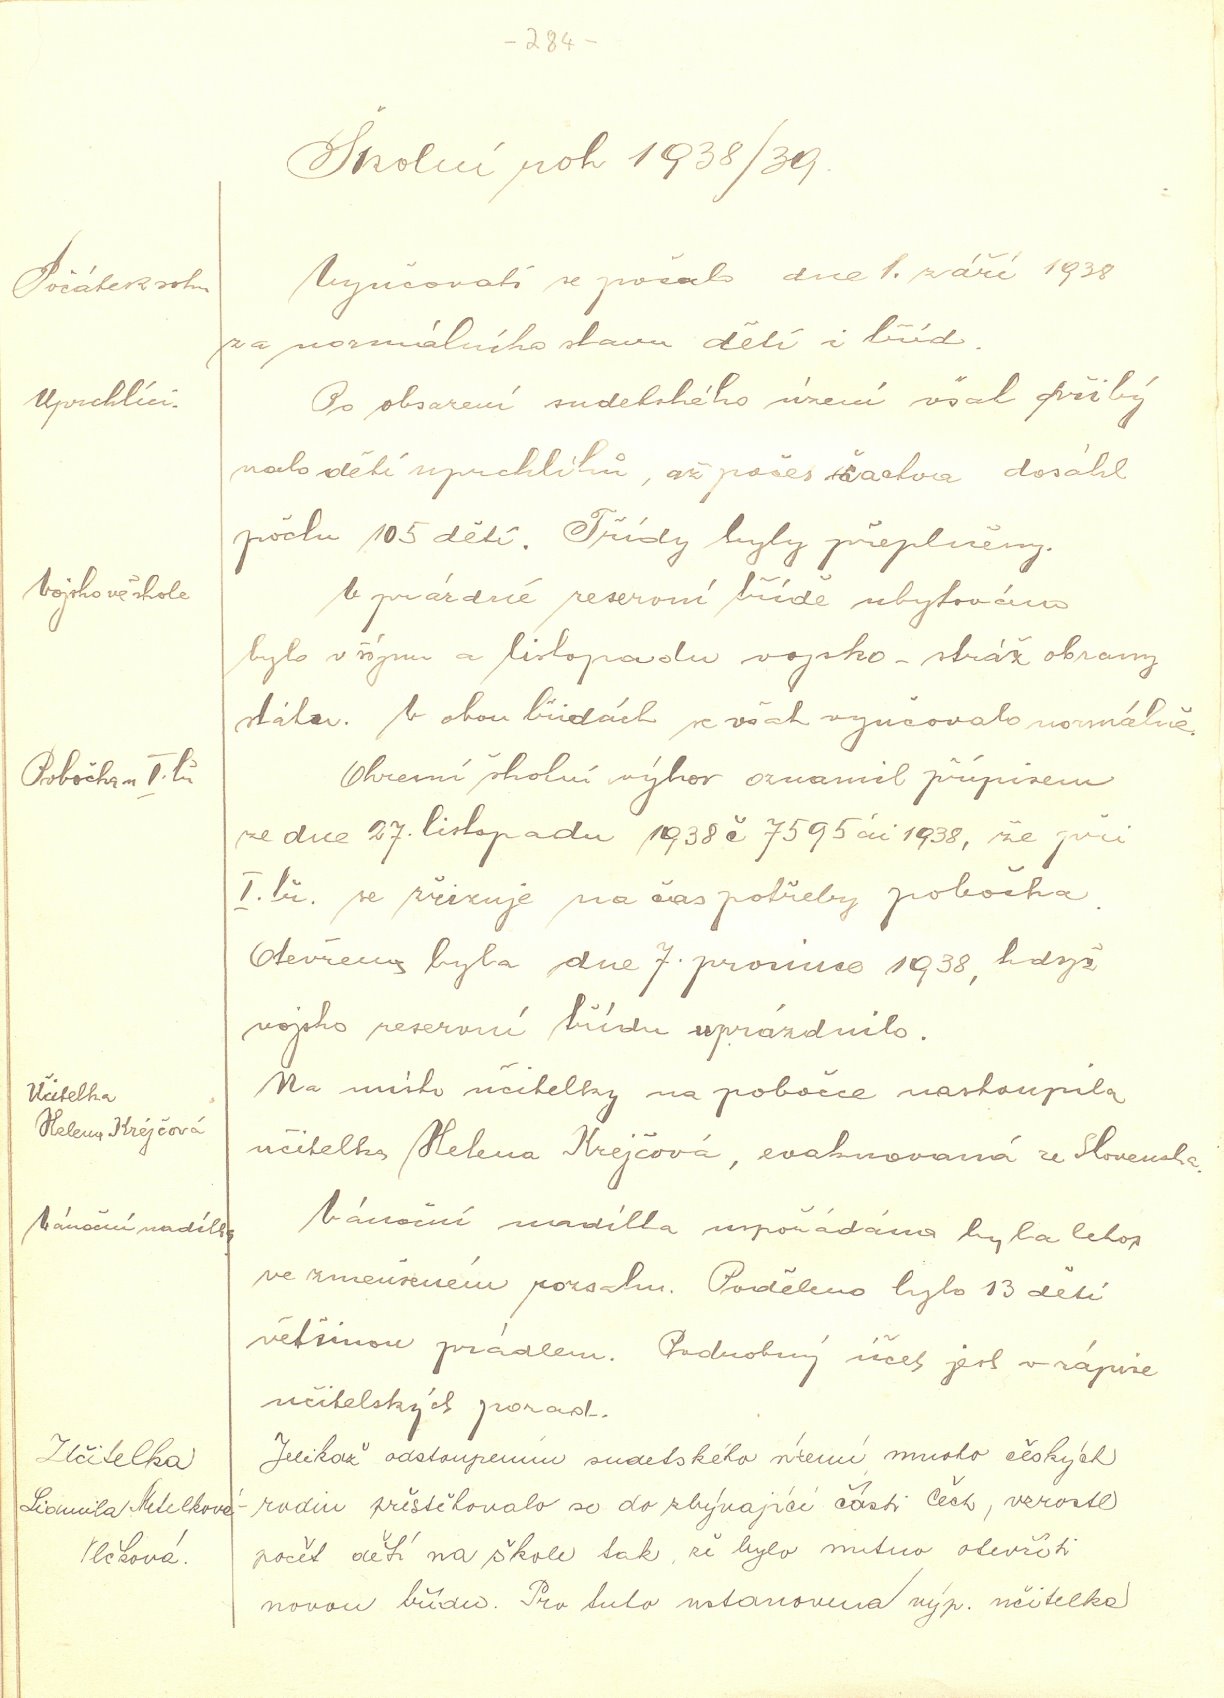 - 284 -
Školní rok 1938/39.
Počátek roku
Vyučovati se počalo dne 1. září 1938
za normálního stavu dětí i tříd.
Uprchlíci.
Po obsazení sudetského území však přibý
valo dětí uprchlíků, až počet žactva dosáhl
počtu 105 dětí. Třídy byly přeplněny.
Vojsko ve škole
V prázdné reservní třídě ubytováno
bylo v říjnu a listopadu vojsko - stráž obrany
státu. V obou třídách se však vyučovalo normálně.
Pobočka u I. tř
Okresní školní výbor oznámil přípisem
ze dne 27. listopadu 1938 č 7595 ai 1938, že při
I. tř. se zřizuje na čas potřeby pobočka.
Otevřena byla dne 7. prosince 1938, když
vojsko reservní třídu uprázdnilo.
Učitelka
Helena Krejčová
Na místo učitelky na pobočce nastoupila
učitelka Helena Krejčová, evakuovaná ze Slovenska.
Vánoční nadílka
Vánoční nadílka uspořádána byla letos
ve zmenšeném rozsahu. Poděleno bylo 13 dětí
většinou prádlem. Podrobný účet jest v zápise
učitelských porad.
Učitelka
Lidmila Metelková-
Vlčková.
Jelikož odstoupením sudetského území mnoho českých
rodin přistěhovalo se do zbývající části Čech, vzrostl
počet dětí na škole tak, že bylo nutno otevříti
novou třídu. Pro tuto ustanovena výp. učitelka